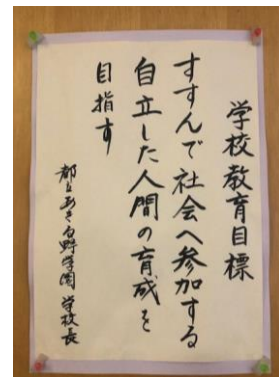 学校教育目標
すすんで社会へ参加する
自立した人間の育成を
目指す
都立あきる野学園 学校長